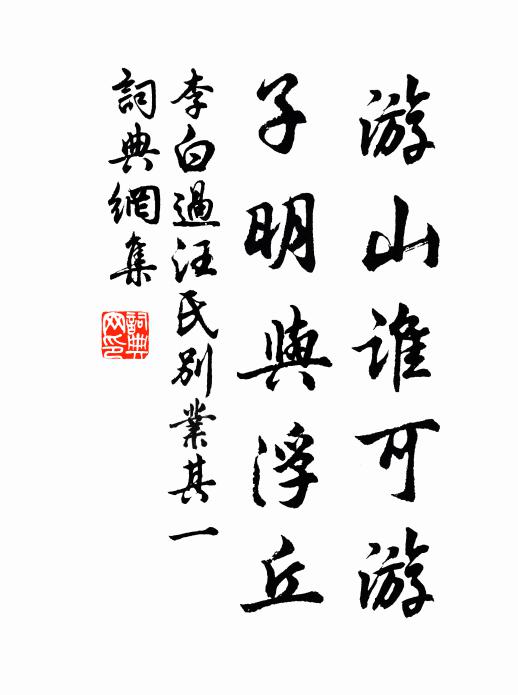 游山谁可游
子明與浮丘
李白過汪氏別業其一
詞典網集
詞典
网印